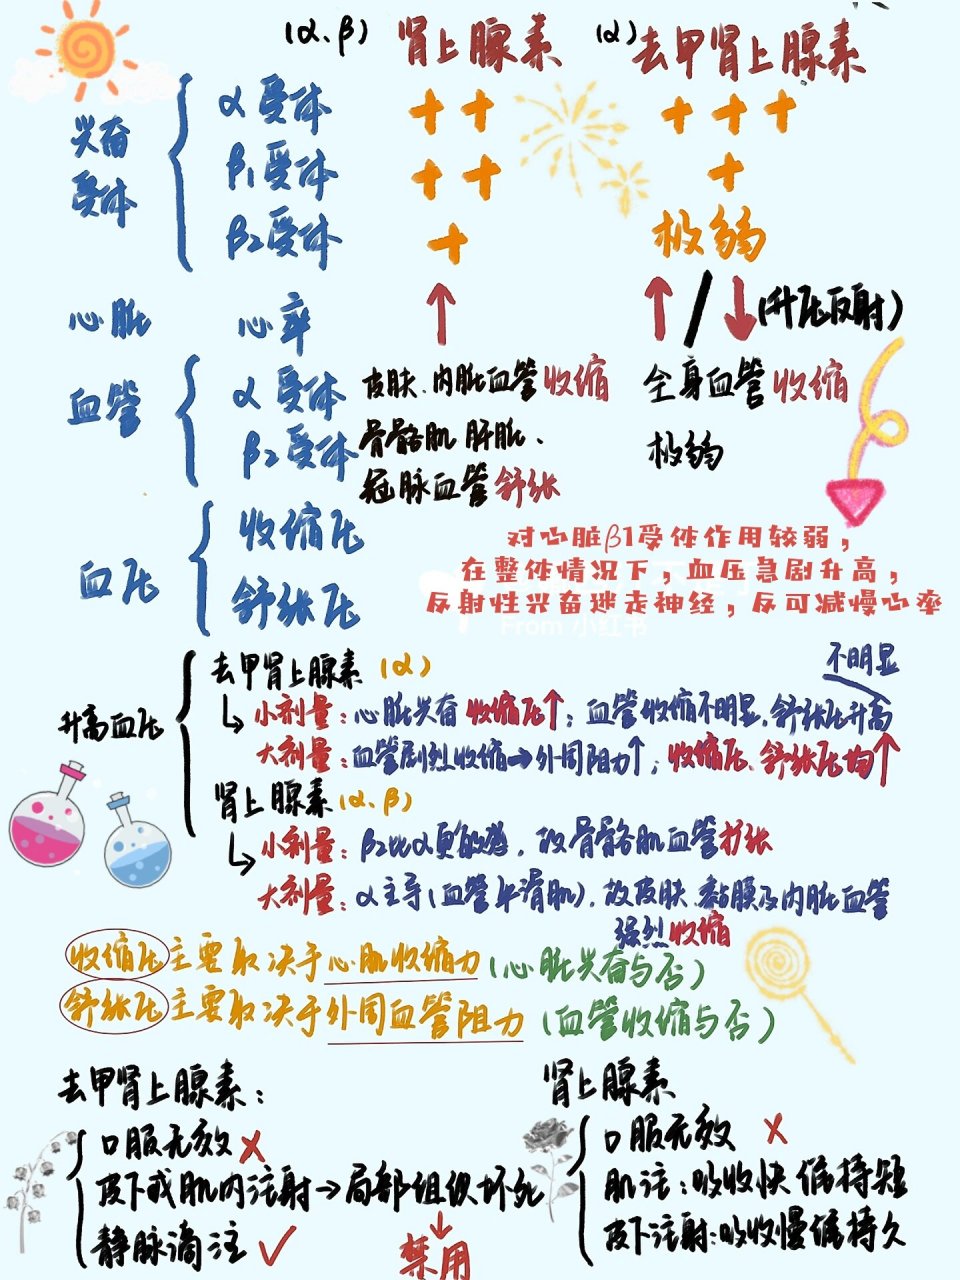 (α、β) 肾上腺素 (α) 去甲肾上腺素
兴奋受体
α受体 ++ +++
β1受体 ++ +
β2受体 + 极弱
心脏 心率 ↑ ↑/↓(升压反射)
血管
α受体 皮肤、内脏血管收缩 全身血管收缩
β2受体 骨骼肌 肝脏、 极弱
冠脉血管舒张
血压
收缩压
舒张压
对心脏β1受体作用较弱，
在整体情况下，血压急剧升高，
反射性兴奋迷走神经，反可减慢心率
From 小红书
升高血压
去甲肾上腺素(α)
不明显
小剂量：心脏兴奋 收缩压↑；血管收缩不明显，舒张压升高
大剂量：血管剧烈收缩→外周阻力↑；收缩压、舒张压均↑
肾上腺素(α、β)
小剂量：β2比α更敏感，故骨骼肌血管扩张
大剂量：α主导(血管平滑肌)，故皮肤、黏膜及内脏血管
强烈收缩
收缩压主要取决于心肌收缩力(心脏兴奋与否)
舒张压主要取决于外周血管阻力(血管收缩与否)
去甲肾上腺素：
口服无效 ×
皮下或肌内注射→局部组织坏死
↓
禁用
静脉滴注 ✓
肾上腺素
口服无效 ×
肌注：吸收快 维持短
皮下注射：吸收慢 维持久